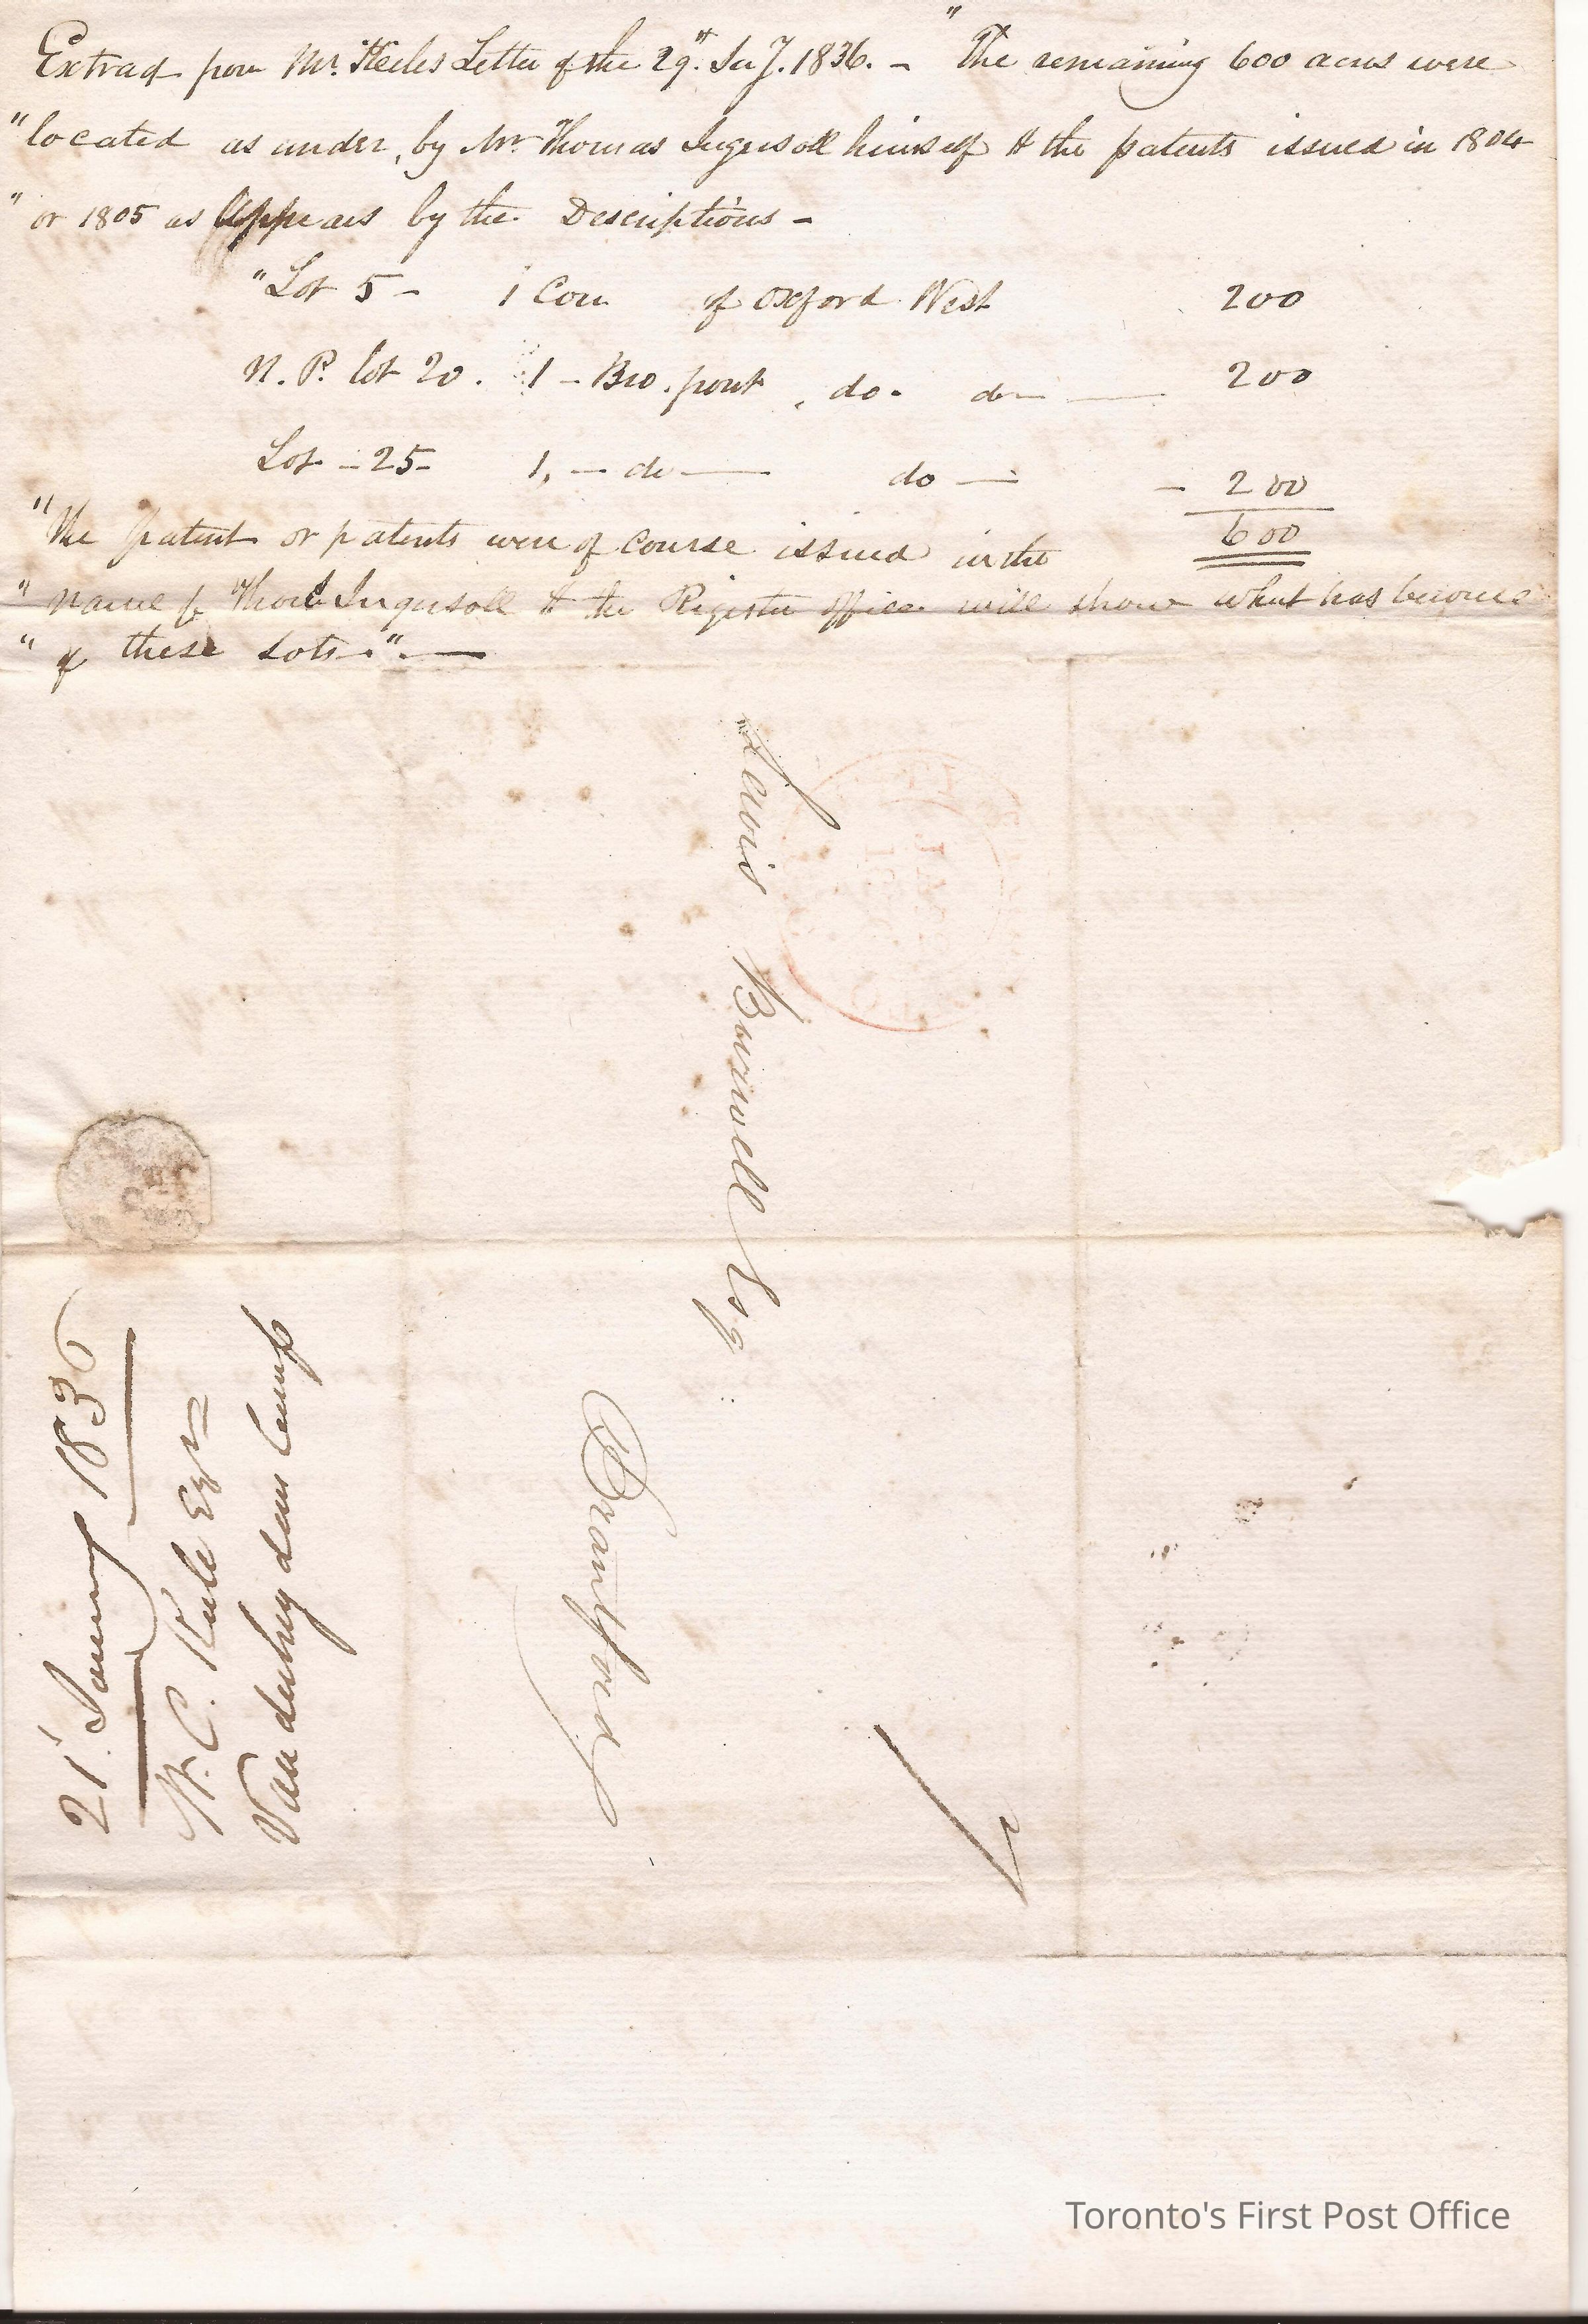 Extract from Mr. Keeles Letter of the 29th. Jany. 1836. - "The remaining 600 acres were
"located as under, by Mr Thomas Ingersoll himself & the patents issued in 1804
" or 1805 as appears by the Descriptions -
"Lot 5 - 1 Con of Oxford West 200
N. P. lot 20. 1 - Bro. front, do. do — 200
Lot - 25 - 1, — do — do — - 200
600
"The patent or patents were of course issued in the
" name of Thos Ingersoll & the Register office will show what has become
" of these Lots." —
Lewis Burwell Esq
Brantford
21 January 1836
W. C. Keele Esqr
Toronto's First Post Office